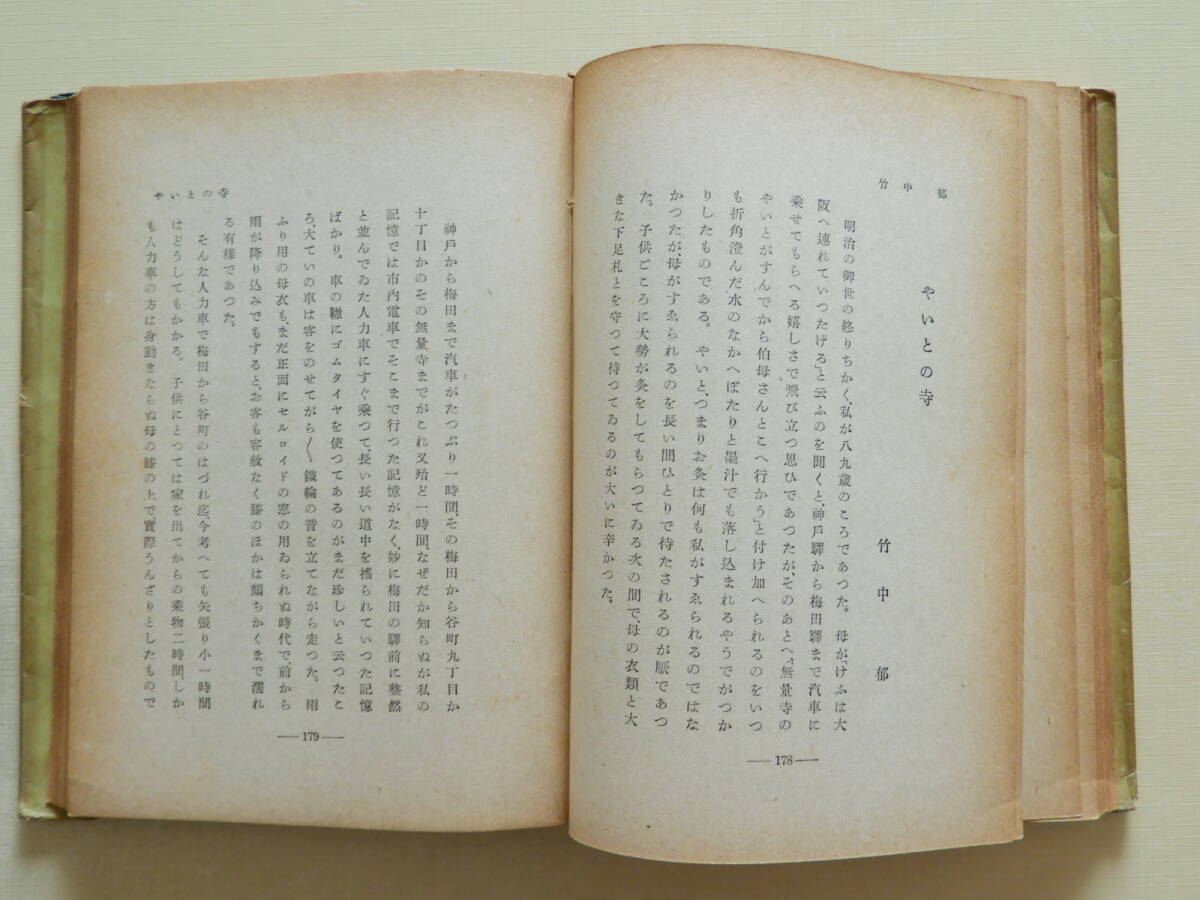 竹中郁
やいとの寺
竹中郁
明治の御世の終りちかく、私が八九歳のころであつた。母が「けふは大
阪へ連れていつたげる」と云ふのを聞くと、神戸驛から梅田驛まで汽車に
乘せてもらへる嬉しさで飛び立つ思ひであつたが、そのあとへ、「無量寺の
やいとがすんでから伯母さんとこへ行かう」と付け加へられるのをいつ
も折角澄んだ水のなかへぽたりと墨汁でも落し込まれるやうでがつか
りしたものである。やいと、つまりお灸は何も私がすゑられるのではな
かつたが、母がすゑられるのを長い間ひとりで待たされるのが厭であつ
た。子供ごころに大勢が灸をしてもらつてゐる次の間で、母の衣類と大
きな下足札とを守つて待つてゐるのが大いに辛かつた。
—178—
やいとの寺
神戸から梅田まで汽車がたつぷり一時間、その梅田から谷町九丁目か
十丁目かのその無量寺までがこれ又殆ど一時間、なぜだか知らぬが私の
記憶では市内電車でそこまで行つた記憶がなく、妙に梅田の驛前に整然
と並んでゐた人力車にすぐ乘つて、長い長い道中を搖られていつた記憶
ばかり。車の轍にゴムタイヤを使つてあるのがまだ珍しいと云つたこ
ろ、大ていの車は客をのせてがら〳〵鐵輪の音を立てながら走つた。雨
ふり用の母衣も、まだ正面にセルロイドの窓の用ゐられぬ時代で、前から
雨が降り込みでもすると、お客も容赦なく膝のほかは顏ちかくまで濡れ
る有樣であつた。
そんな人力車で梅田から谷町のはづれ迄、今考へても矢張り小一時間
はどうしてもかかる。子供にとつては家を出てからの乘物二時間、しか
も人力車の方は身動きならぬ母の膝の上で、實際うんざりとしたもので
—179—